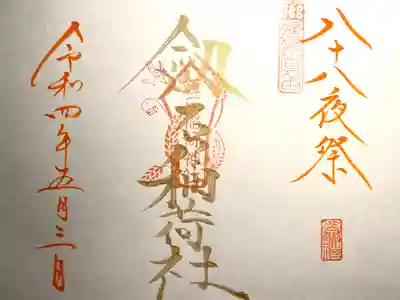 八十八夜祭
劔石稲荷社
令和四年五月三日